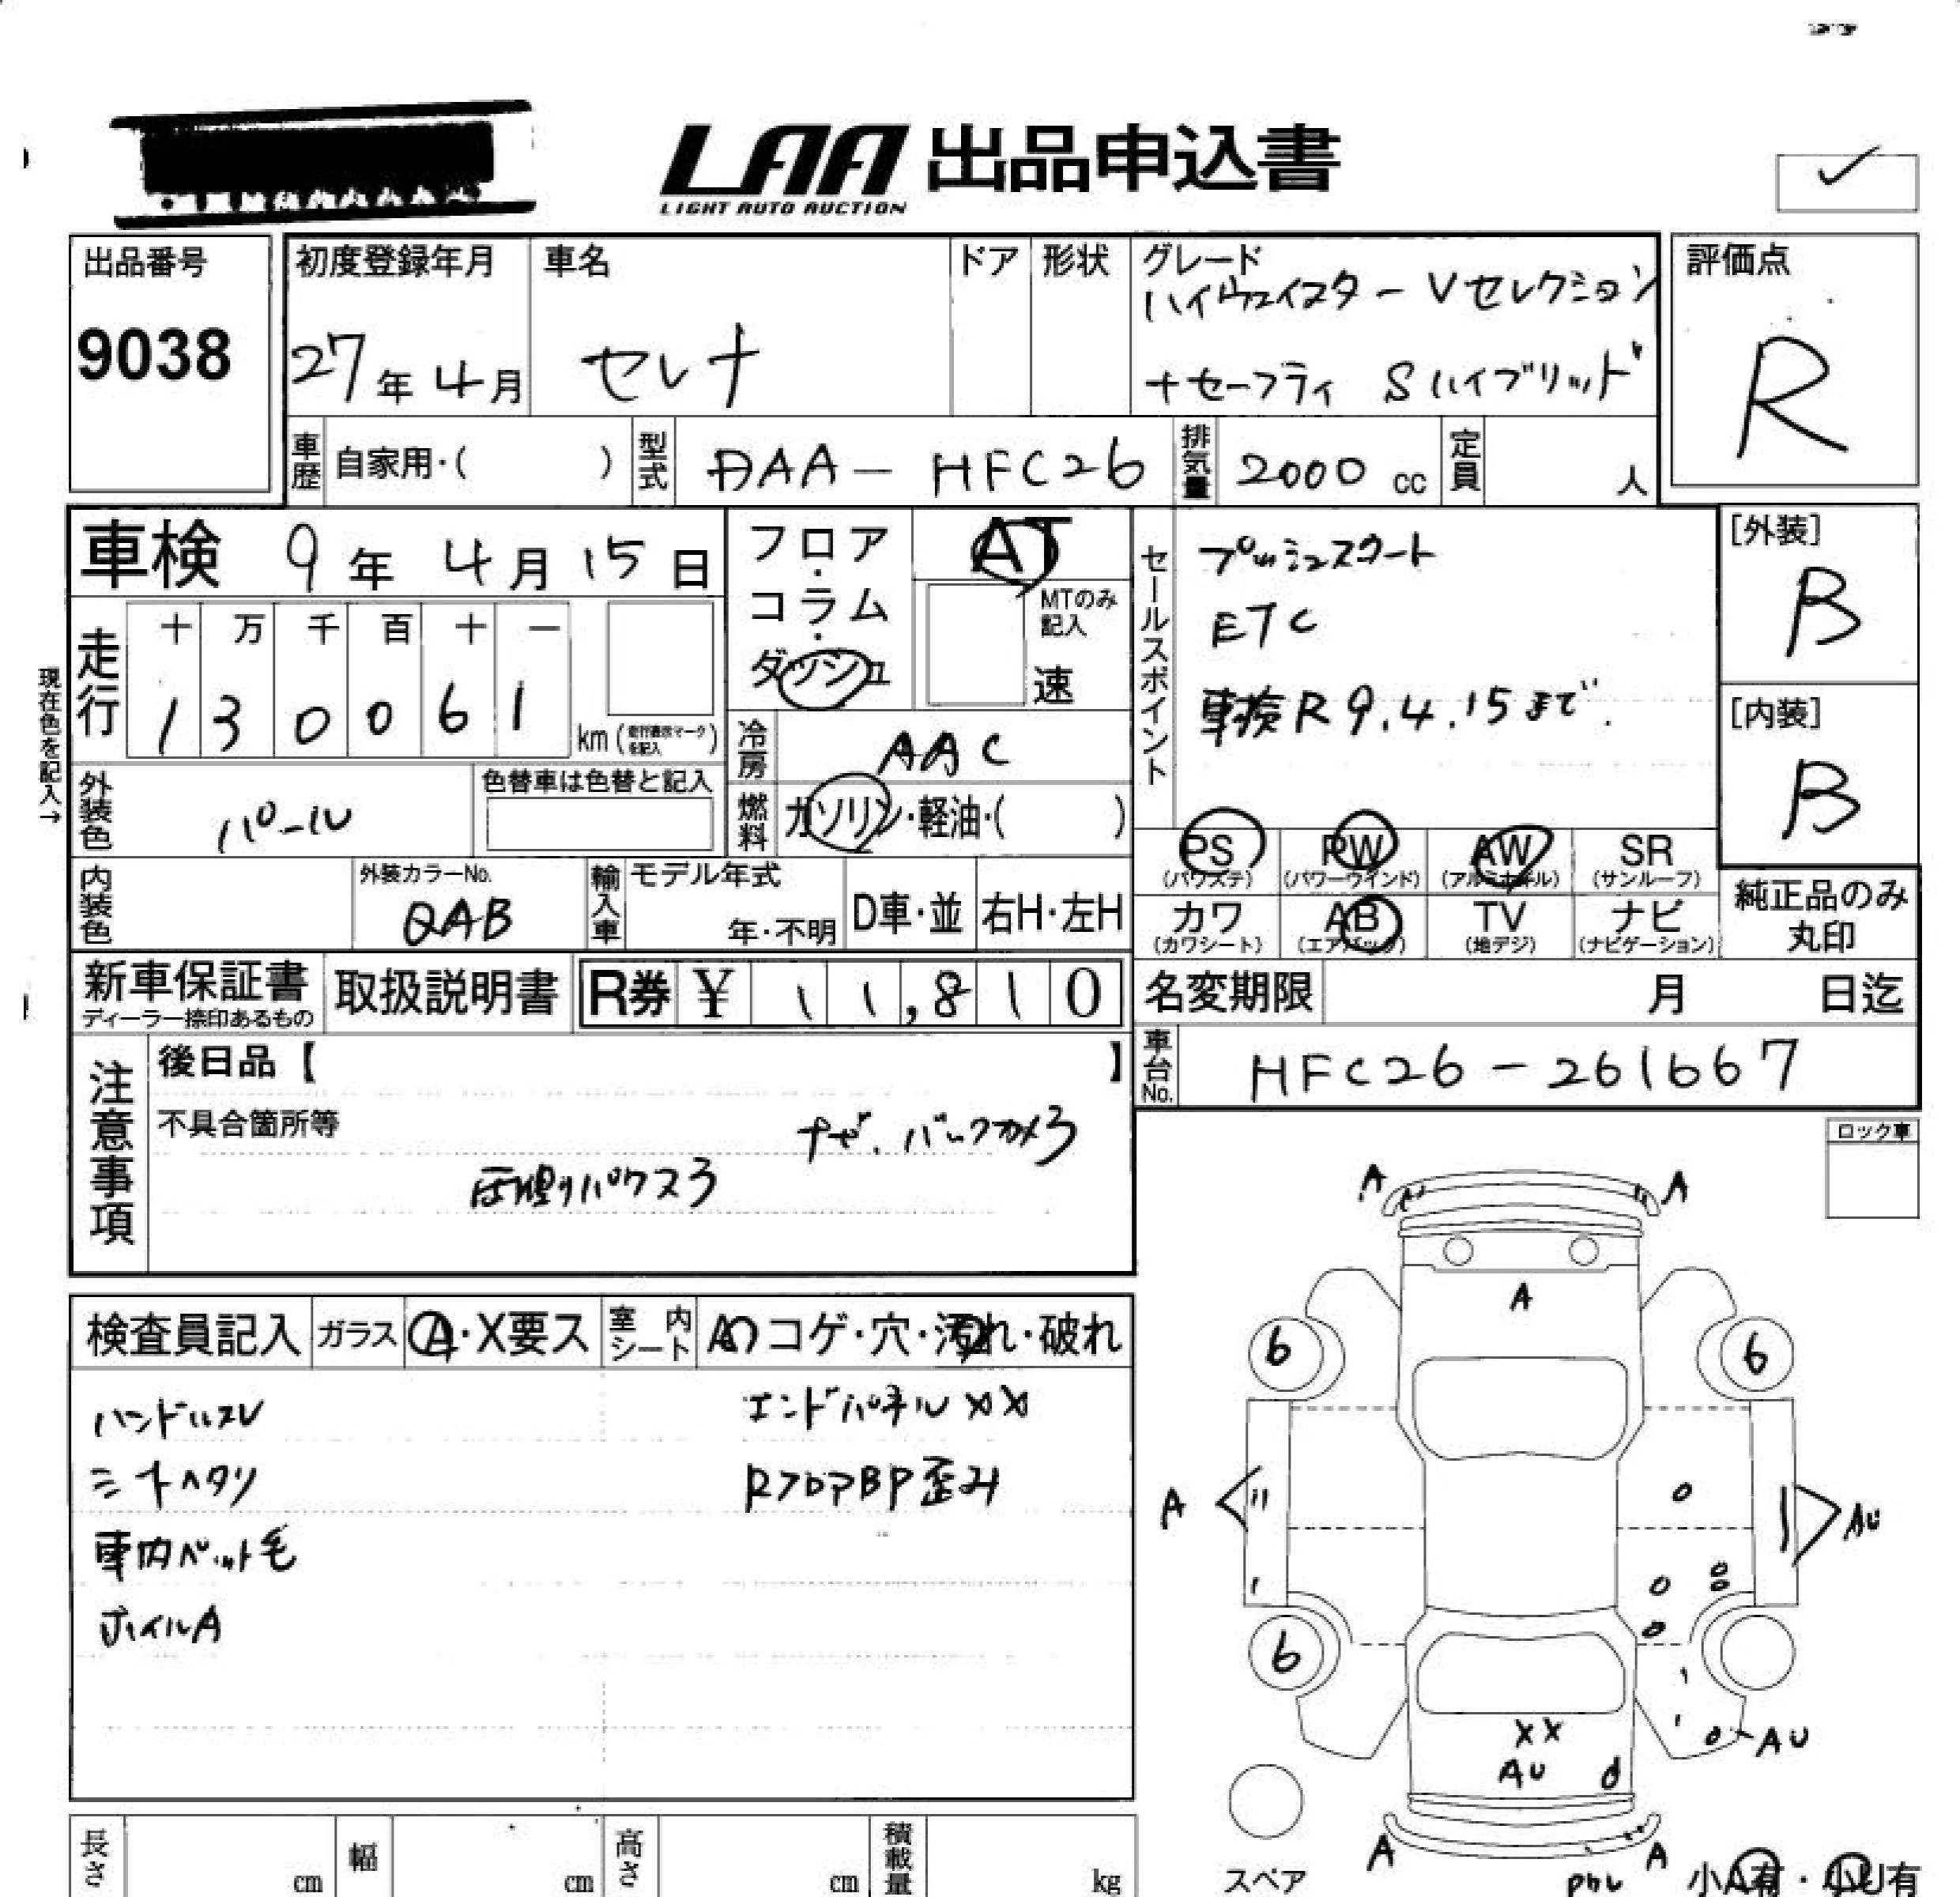 LAA 出品申込書
LIGHT AUTO AUCTION
出品番号
9038
初度登録年月
27年 4月
車名
セレナ
ドア
形状
グレード
ハイウェイスター Vセレクション
+セーフティ Sハイブリッド
評価点
R
車歴
自家用・( )
型式
DAA-HFC26
排気量
2000 cc
定員
人
車検 9年 4月 15日
フロア・コラム・ダッシュ
AT
MTのみ記入
速
セールスポイント
プッシュスタート
ETC
車検R9.4.15まで.
[外装]
B
[内装]
B
現在色を記入→
走行
十 万 千 百 十 一
1 3 0 0 6 1
km (走行表示マークを記入)
冷房
AAC
燃料
ガソリン・軽油・( )
外装色
パール
色替車は色替と記入
内装色
外装カラーNo.
QAB
輸入車
モデル年式
年・不明
D車・並
右H・左H
PS
(パワステ)
PW
(パワーウインド)
AW
(アルミホイル)
SR
(サンルーフ)
カワ
(カワシート)
AB
(エアバック)
TV
(地デジ)
ナビ
(ナビゲーション)
純正品のみ
丸印
新車保証書
ディーラー捺印あるもの
取扱説明書
R券 ¥ 11,810
名変期限
月 日迄
車台No.
HFC26-261667
注意事項
後日品【 】
不具合箇所等
ナビ.バックカメラ
ロック車
検査員記入
ガラス
A・X要ス
室内シート
コゲ・穴・汚れ・破れ
ハンドルスレ
シートヘタリ
車内ペット毛
ホイルA
エンドパネルXX
RフロアBP歪み
A A
A
6 6
A AU
6
XX
AU
AU
A A
スペア
小A有・小U有
長さ cm
幅 cm
高さ cm
積載量 kg